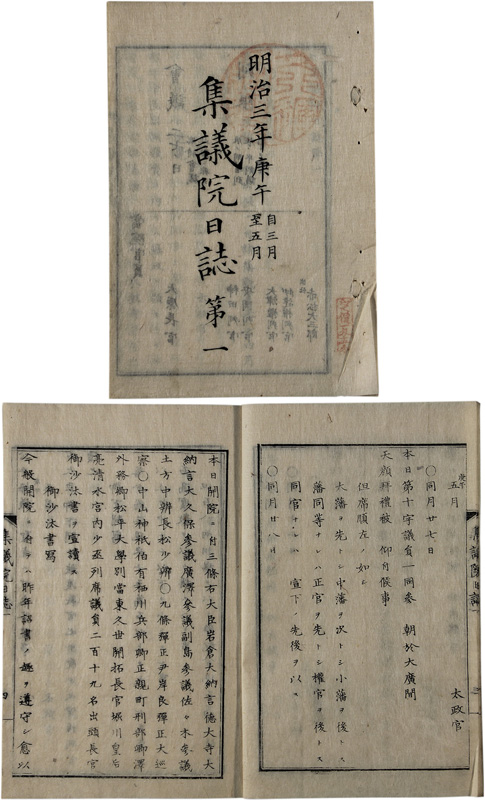 明治三年庚午
自三月
至五月
集議院日誌 第一
庚午
五月
太政官
〇同月廿七日
本日第十字議員一同參 朝於大廣間
天顔拜禮被 仰付候事
但席順左ノ如シ
大藩ヲ先トシ中藩ヲ次トシ小藩ヲ後トス
藩同等ナレハ正官ヲ先トシ權官ヲ後トス
同官ナレハ 宣下ノ先後ヲ以ス
〇同月廿八日
集議院日誌
本日開院ニ付三條右大臣岩倉大納言德大寺大
納言大久保參議廣澤參議副島參議佐々木參議
土方中辨長松少辨〇九條彈正尹岸良彈正大巡
察〇中山神祇伯有栖川兵部卿正親町刑部卿澤
外務卿松平大學別當東久世開拓長官堀川皇后
亮清水宮內少丞列席議員二百十九名出頭長官
御沙汰書ヲ宣讀ス
御沙汰書寫
今般開院ニ付テハ昨年詔書ノ趣ヲ遵守シ愈以
集議院日誌
四